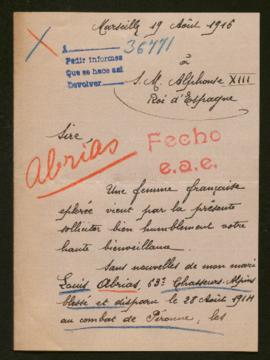 Marseille 19 Août 1916
36771
A
Pedir informes
Que se hace así
Devolver
à
S. M. Alphonse XIII
Roi d'Espagne
Sire,
Abrias
Fecho
e.a.e.
Une femme française
éplorée vient par la présente
solliciter bien humblement votre
haute bienveillance.
Sans nouvelles de mon mari
Louis Abrias, 63e Chasseurs Alpins
blessé et disparu le 28 Août 1914
au combat de Péronne, les